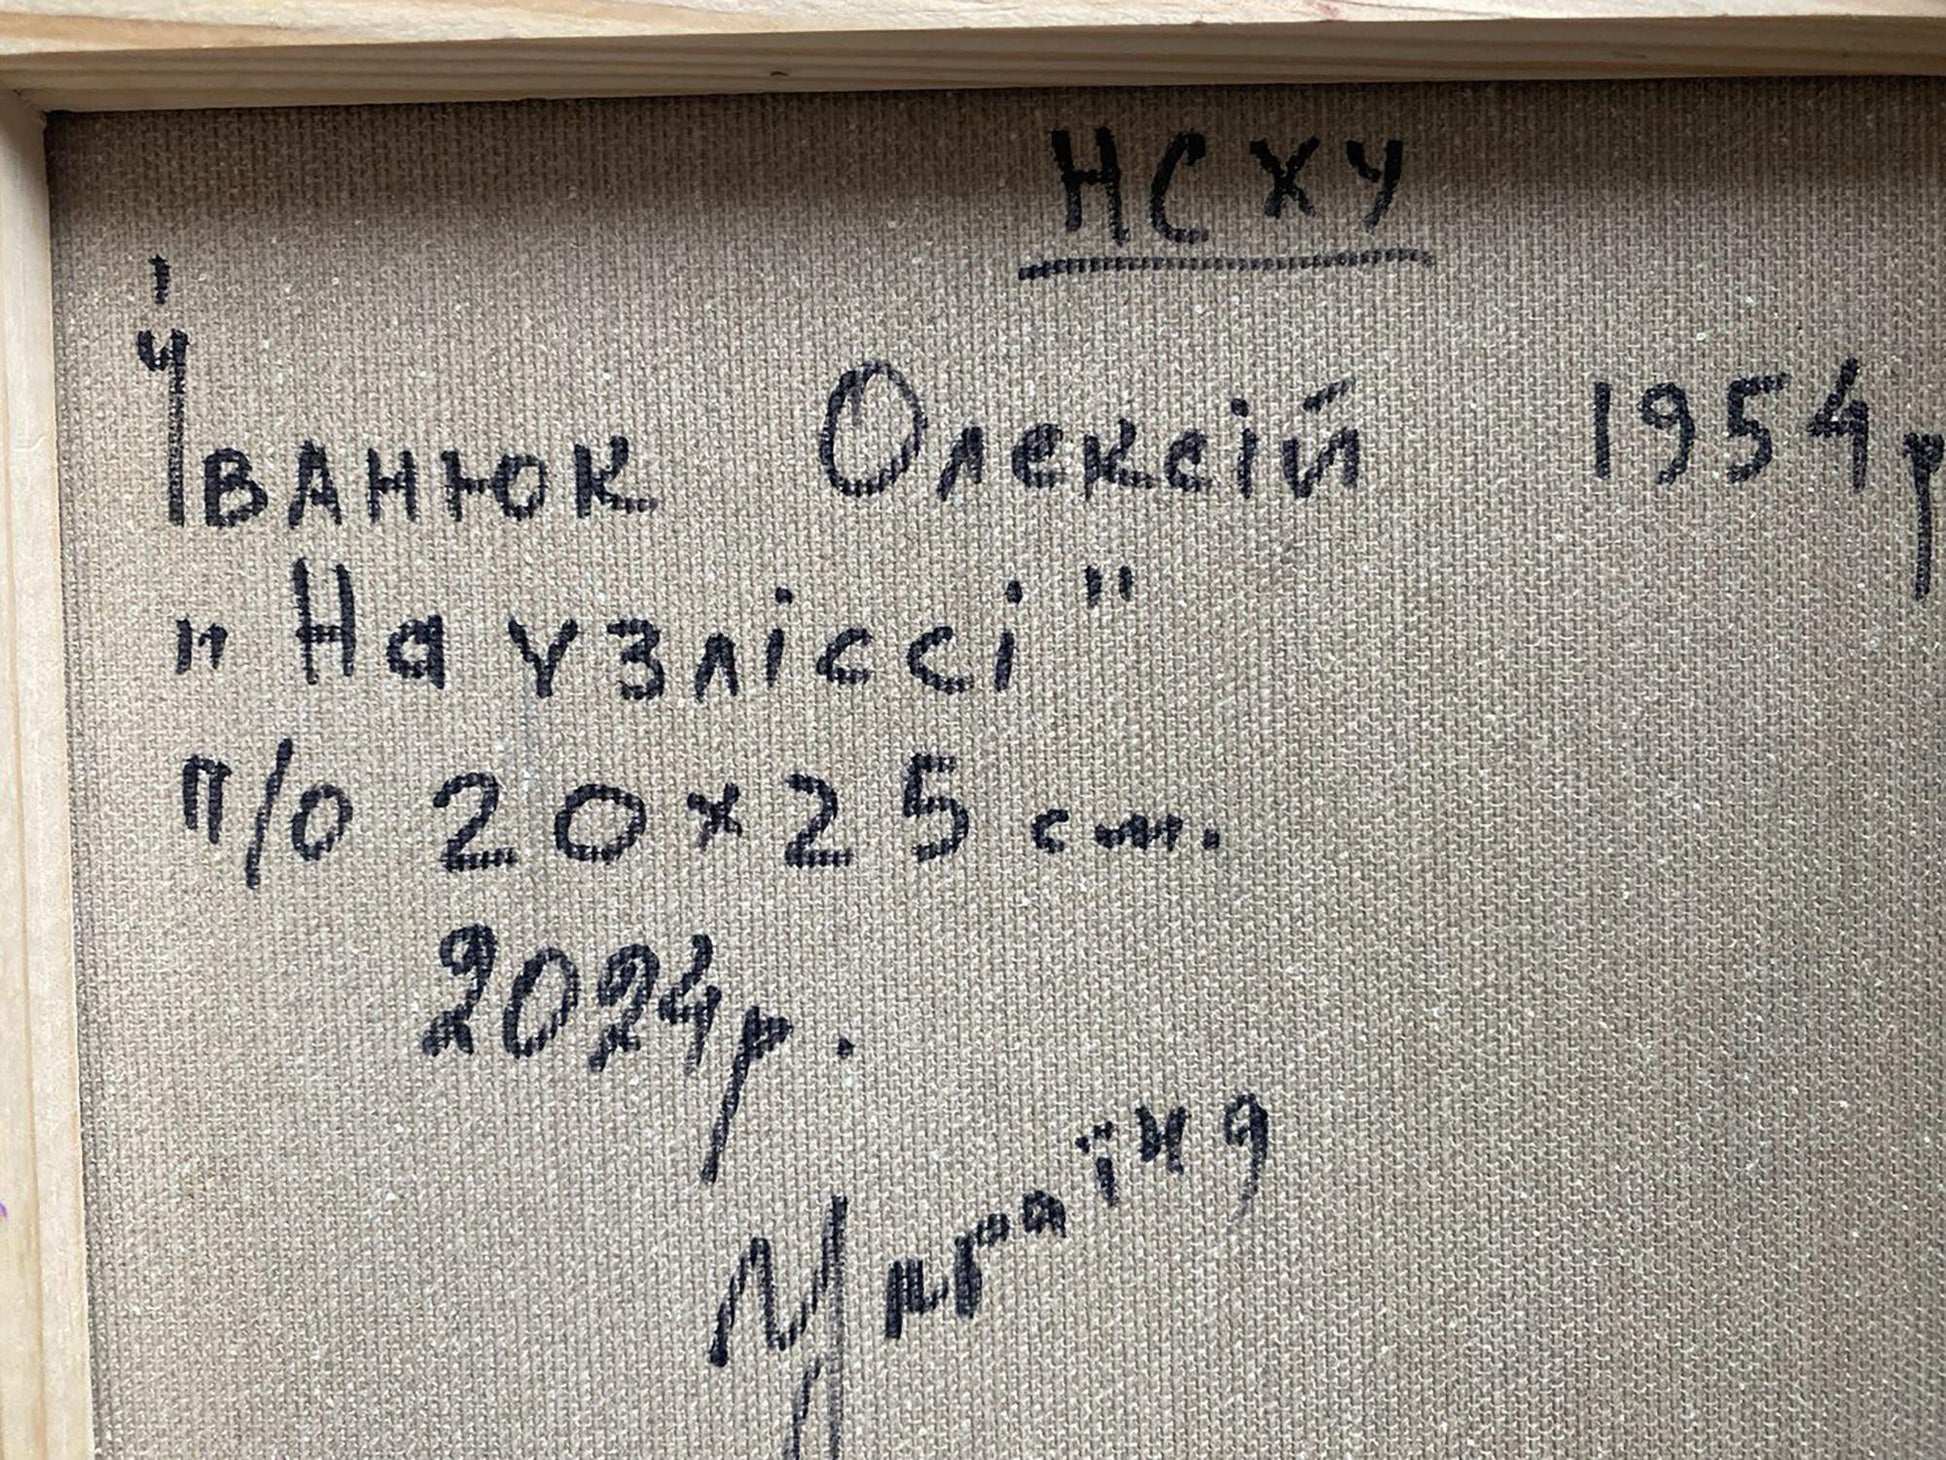 НСХУ
Іванюк Олексій 1954р
"На узліссі"
п/о 20х25 см.
2024р.
Україна